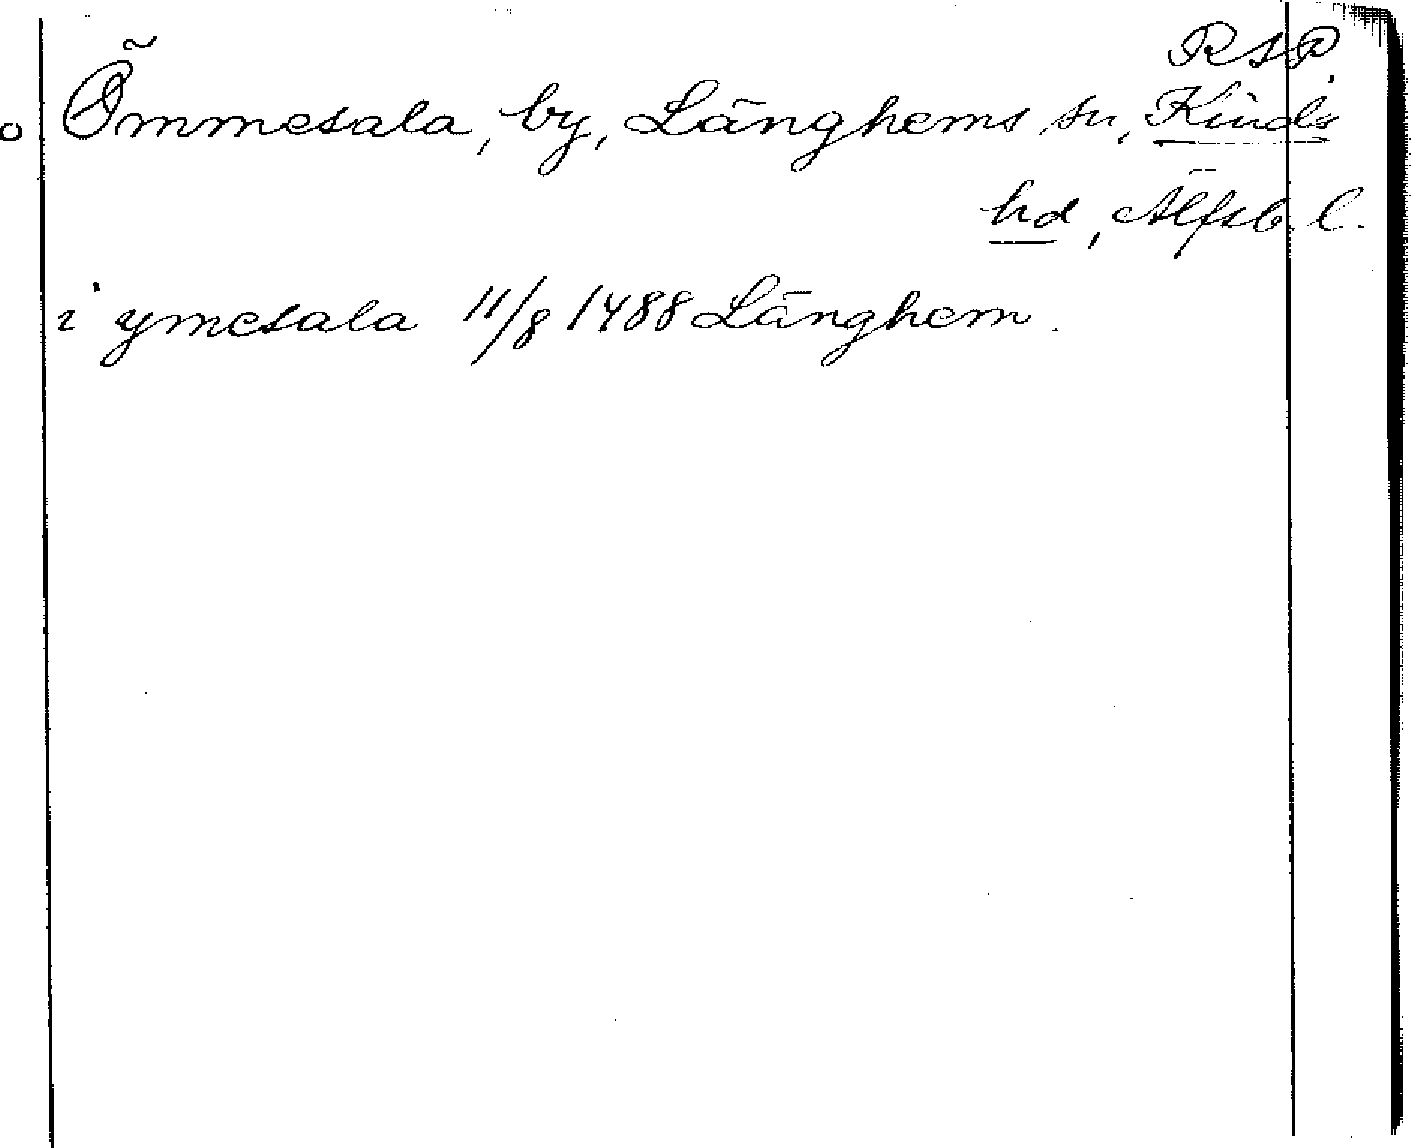 RSP
Ömmesala, by, Länghems sn, Kinds
hd, Älfsb. l.
i ymesala 11/8 1488 Länghem.